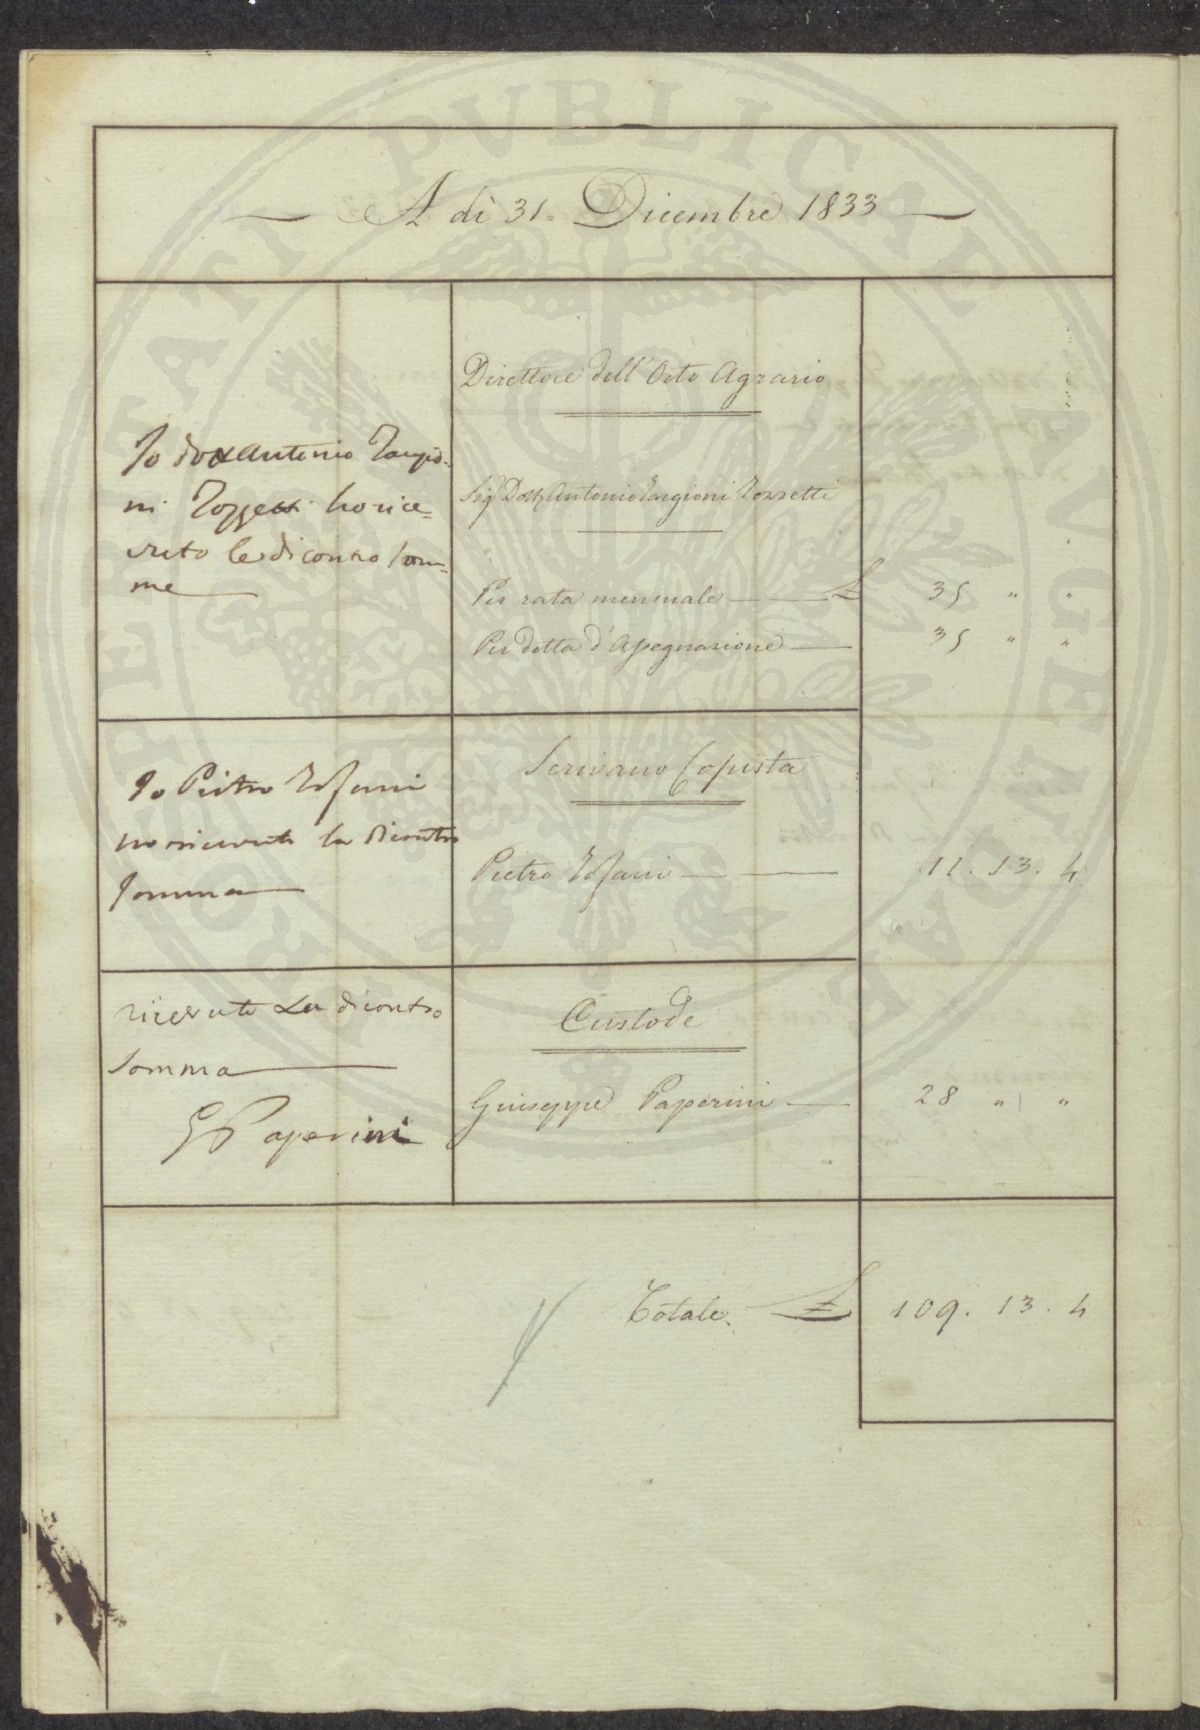 A dì 31. Dicembre 1833
Direttore dell'Orto Agrario
Io Dott Antonio Targio=
ni Tozzetti ho rice=
vuto le di contro som=
me
Sig.r Dott. Antonio Targioni Tozzetti
Per rata mensuale £ 35 " "
Per detta d'Apegnazione 35 " "
Scrivano Copista
Io Pietro
ho ricevuto la di contro
somma
Pietro 11. 13. 4
Custode
ricevuto La di contro
Somma
G Paperini
Giuseppe Paperini 28 " "
Totale. £ 109. 13. 4
REI PUBLICAE AUGE